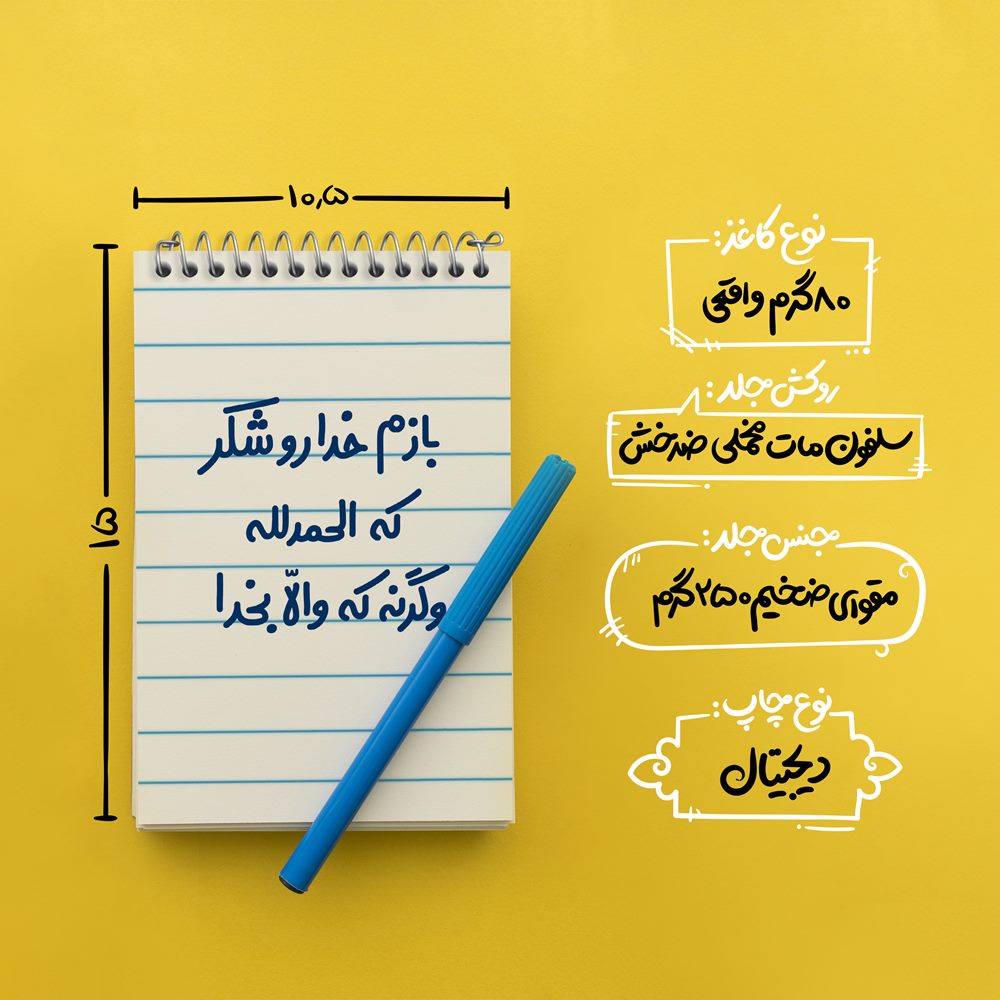 ۱۰٫۵
۱۵
بازم خدارو شکر
که الحمدلله
وگرنه که والّا بخدا
نوع کاغذ:
۸۰گرم واقعی
روکش جلد:
سلفون مات مخملی ضدخش
جنس جلد:
مقوای ضخیم ۲۵۰گرم
نوع چاپ:
دیجیتال